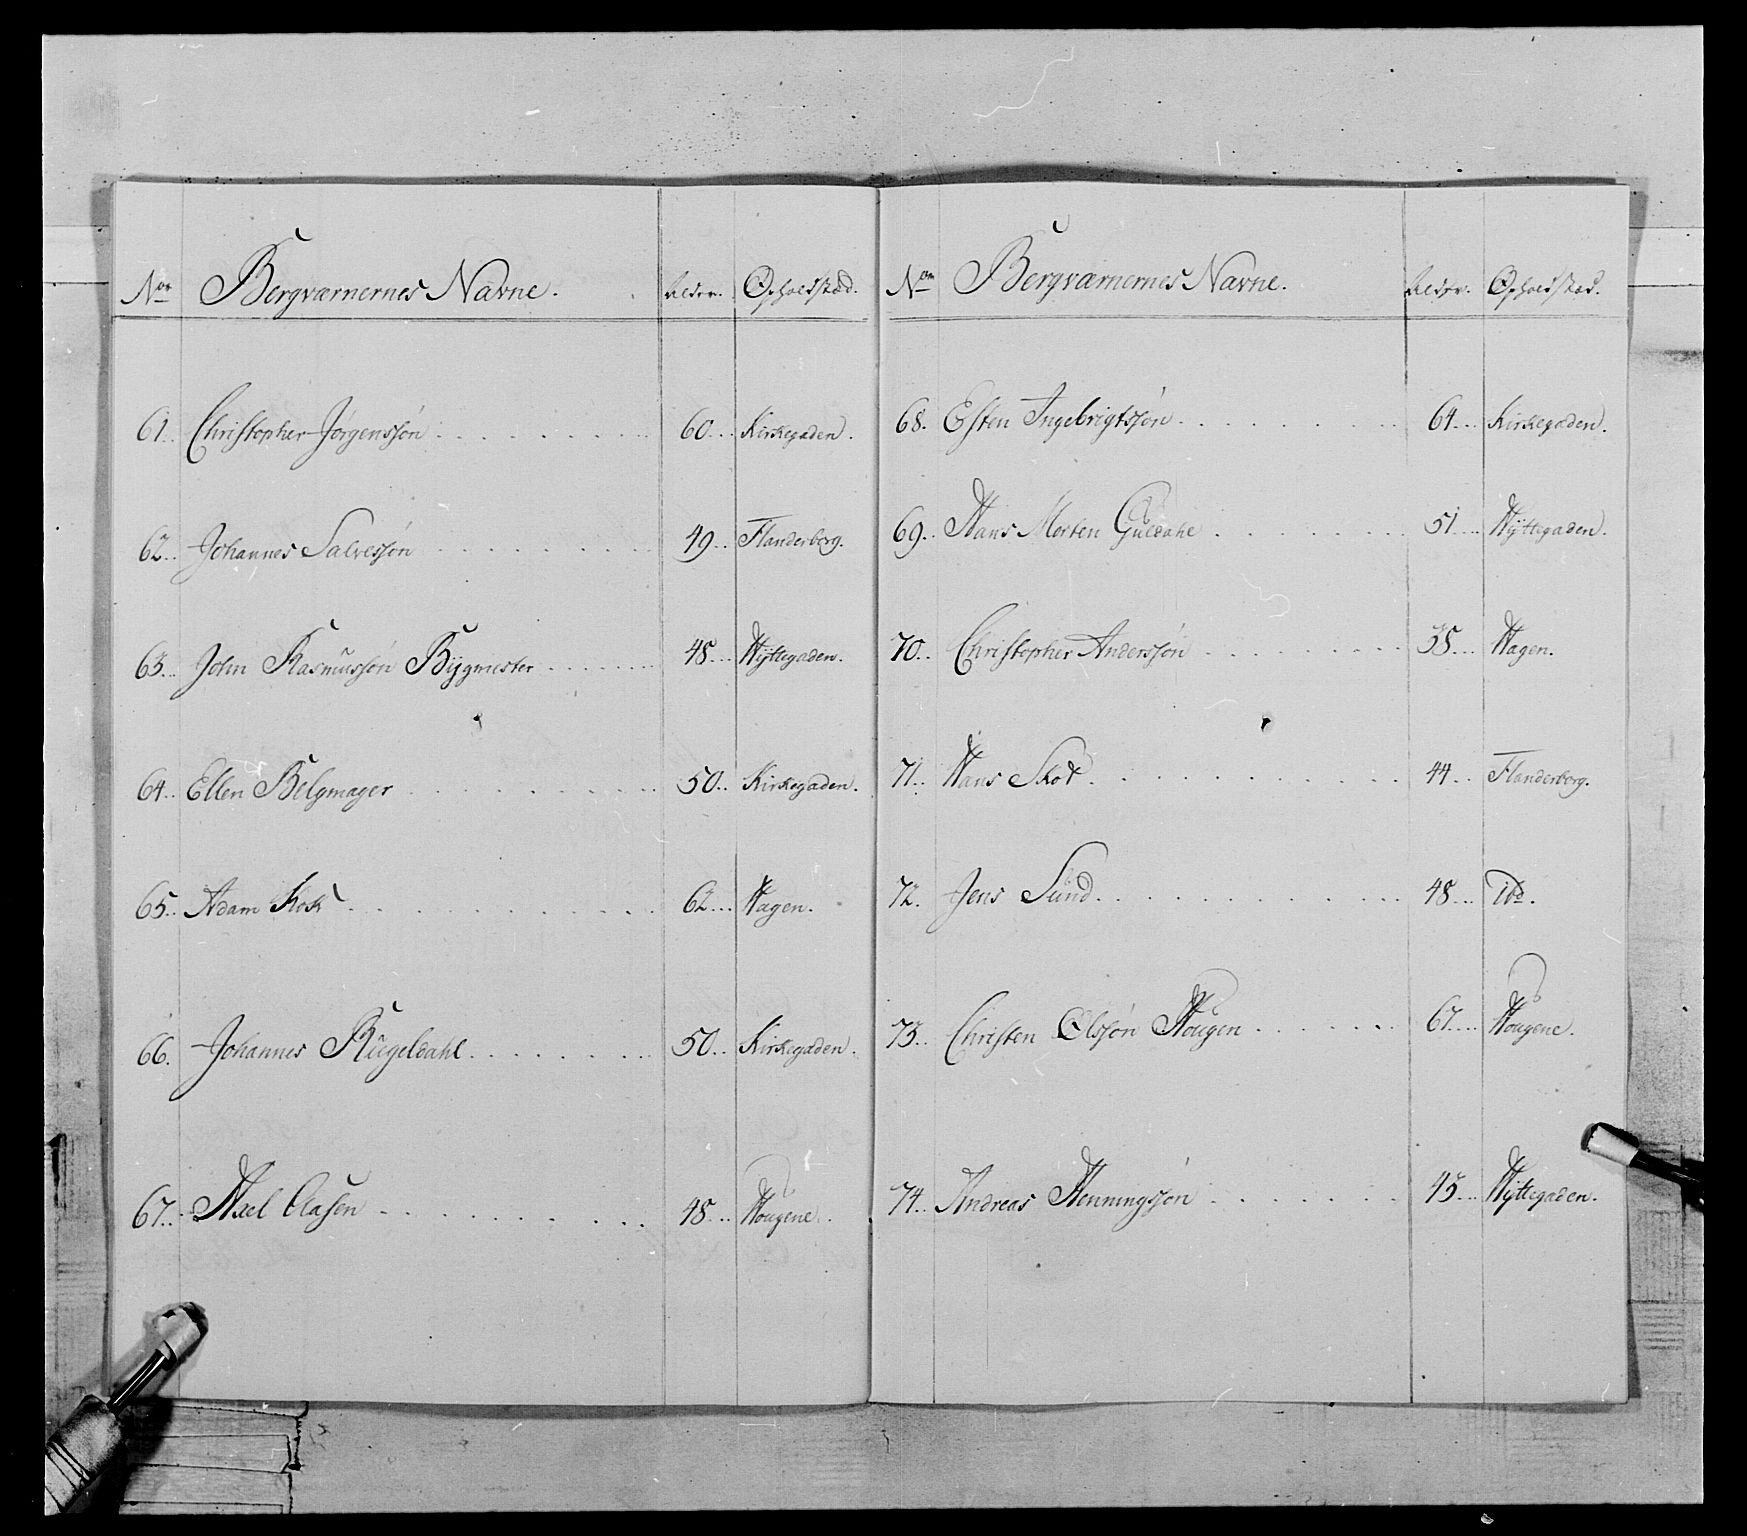 Nor Bergværnernes Navne. Alder. Opholdsted.
61. Christopher Jørgenssøn 60 Kirkegaden.
62. Johannes Salvessøn 49 Flanderborg.
63. John Rasmussøn Bygmester 48 Hyttegaden.
64. Ellen Belgmager 50 Kirkegaden.
65. Adam Kok 62 Hagen.
66. Johannes Kugeldahl 50 Kirkegaden.
67. Axel Clasen 48 Hougene.
Nor Bergværnernes Navne. Alder. Opholdsted.
68. Esten Ingebrigtssøn 64 Kirkegaden.
69. Hans Morten Guldahl 51 Hyttegaden.
70. Christopher Anderssøn 38 Hagen.
71. Hans Skot 44 Flanderborg.
72. Jens Sund 48 ibd.
73. Christen Olssøn Hougen 67 Hougene.
74. Andreas Henningssøn 45 Hyttegaden.